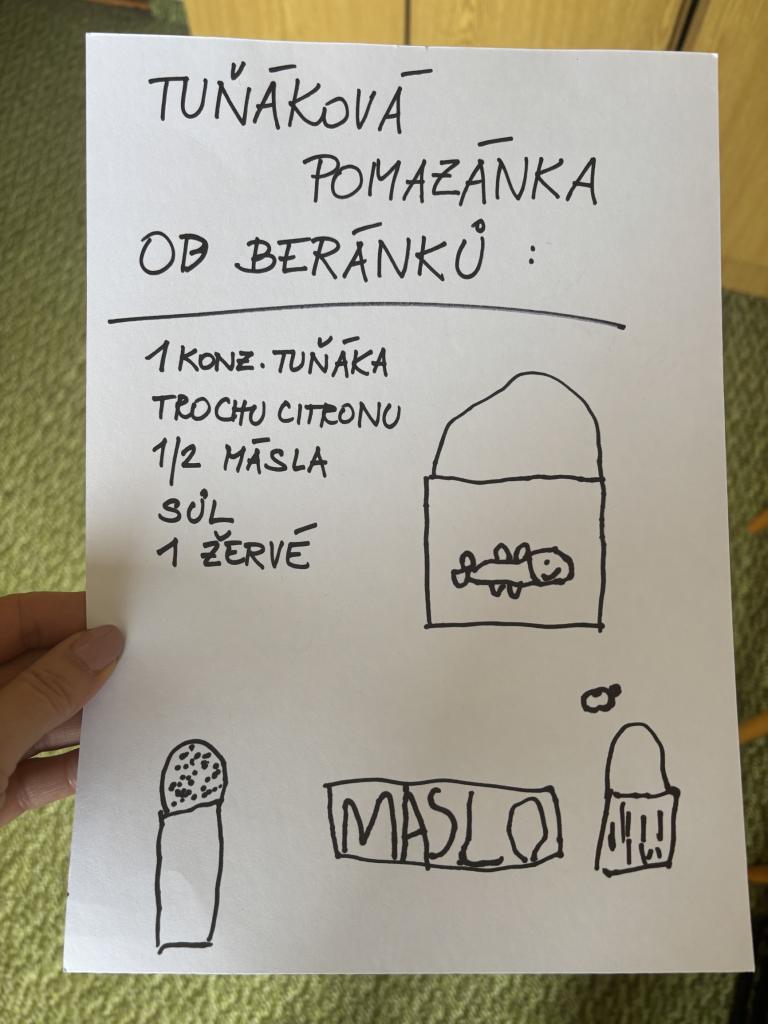 TUŇÁKOVÁ
POMAZÁNKA
OD BERÁNKŮ :
1 KONZ. TUŇÁKA
TROCHU CITRONU
1/2 MÁSLA
SŮL
1 ŽERVÉ
MASLO